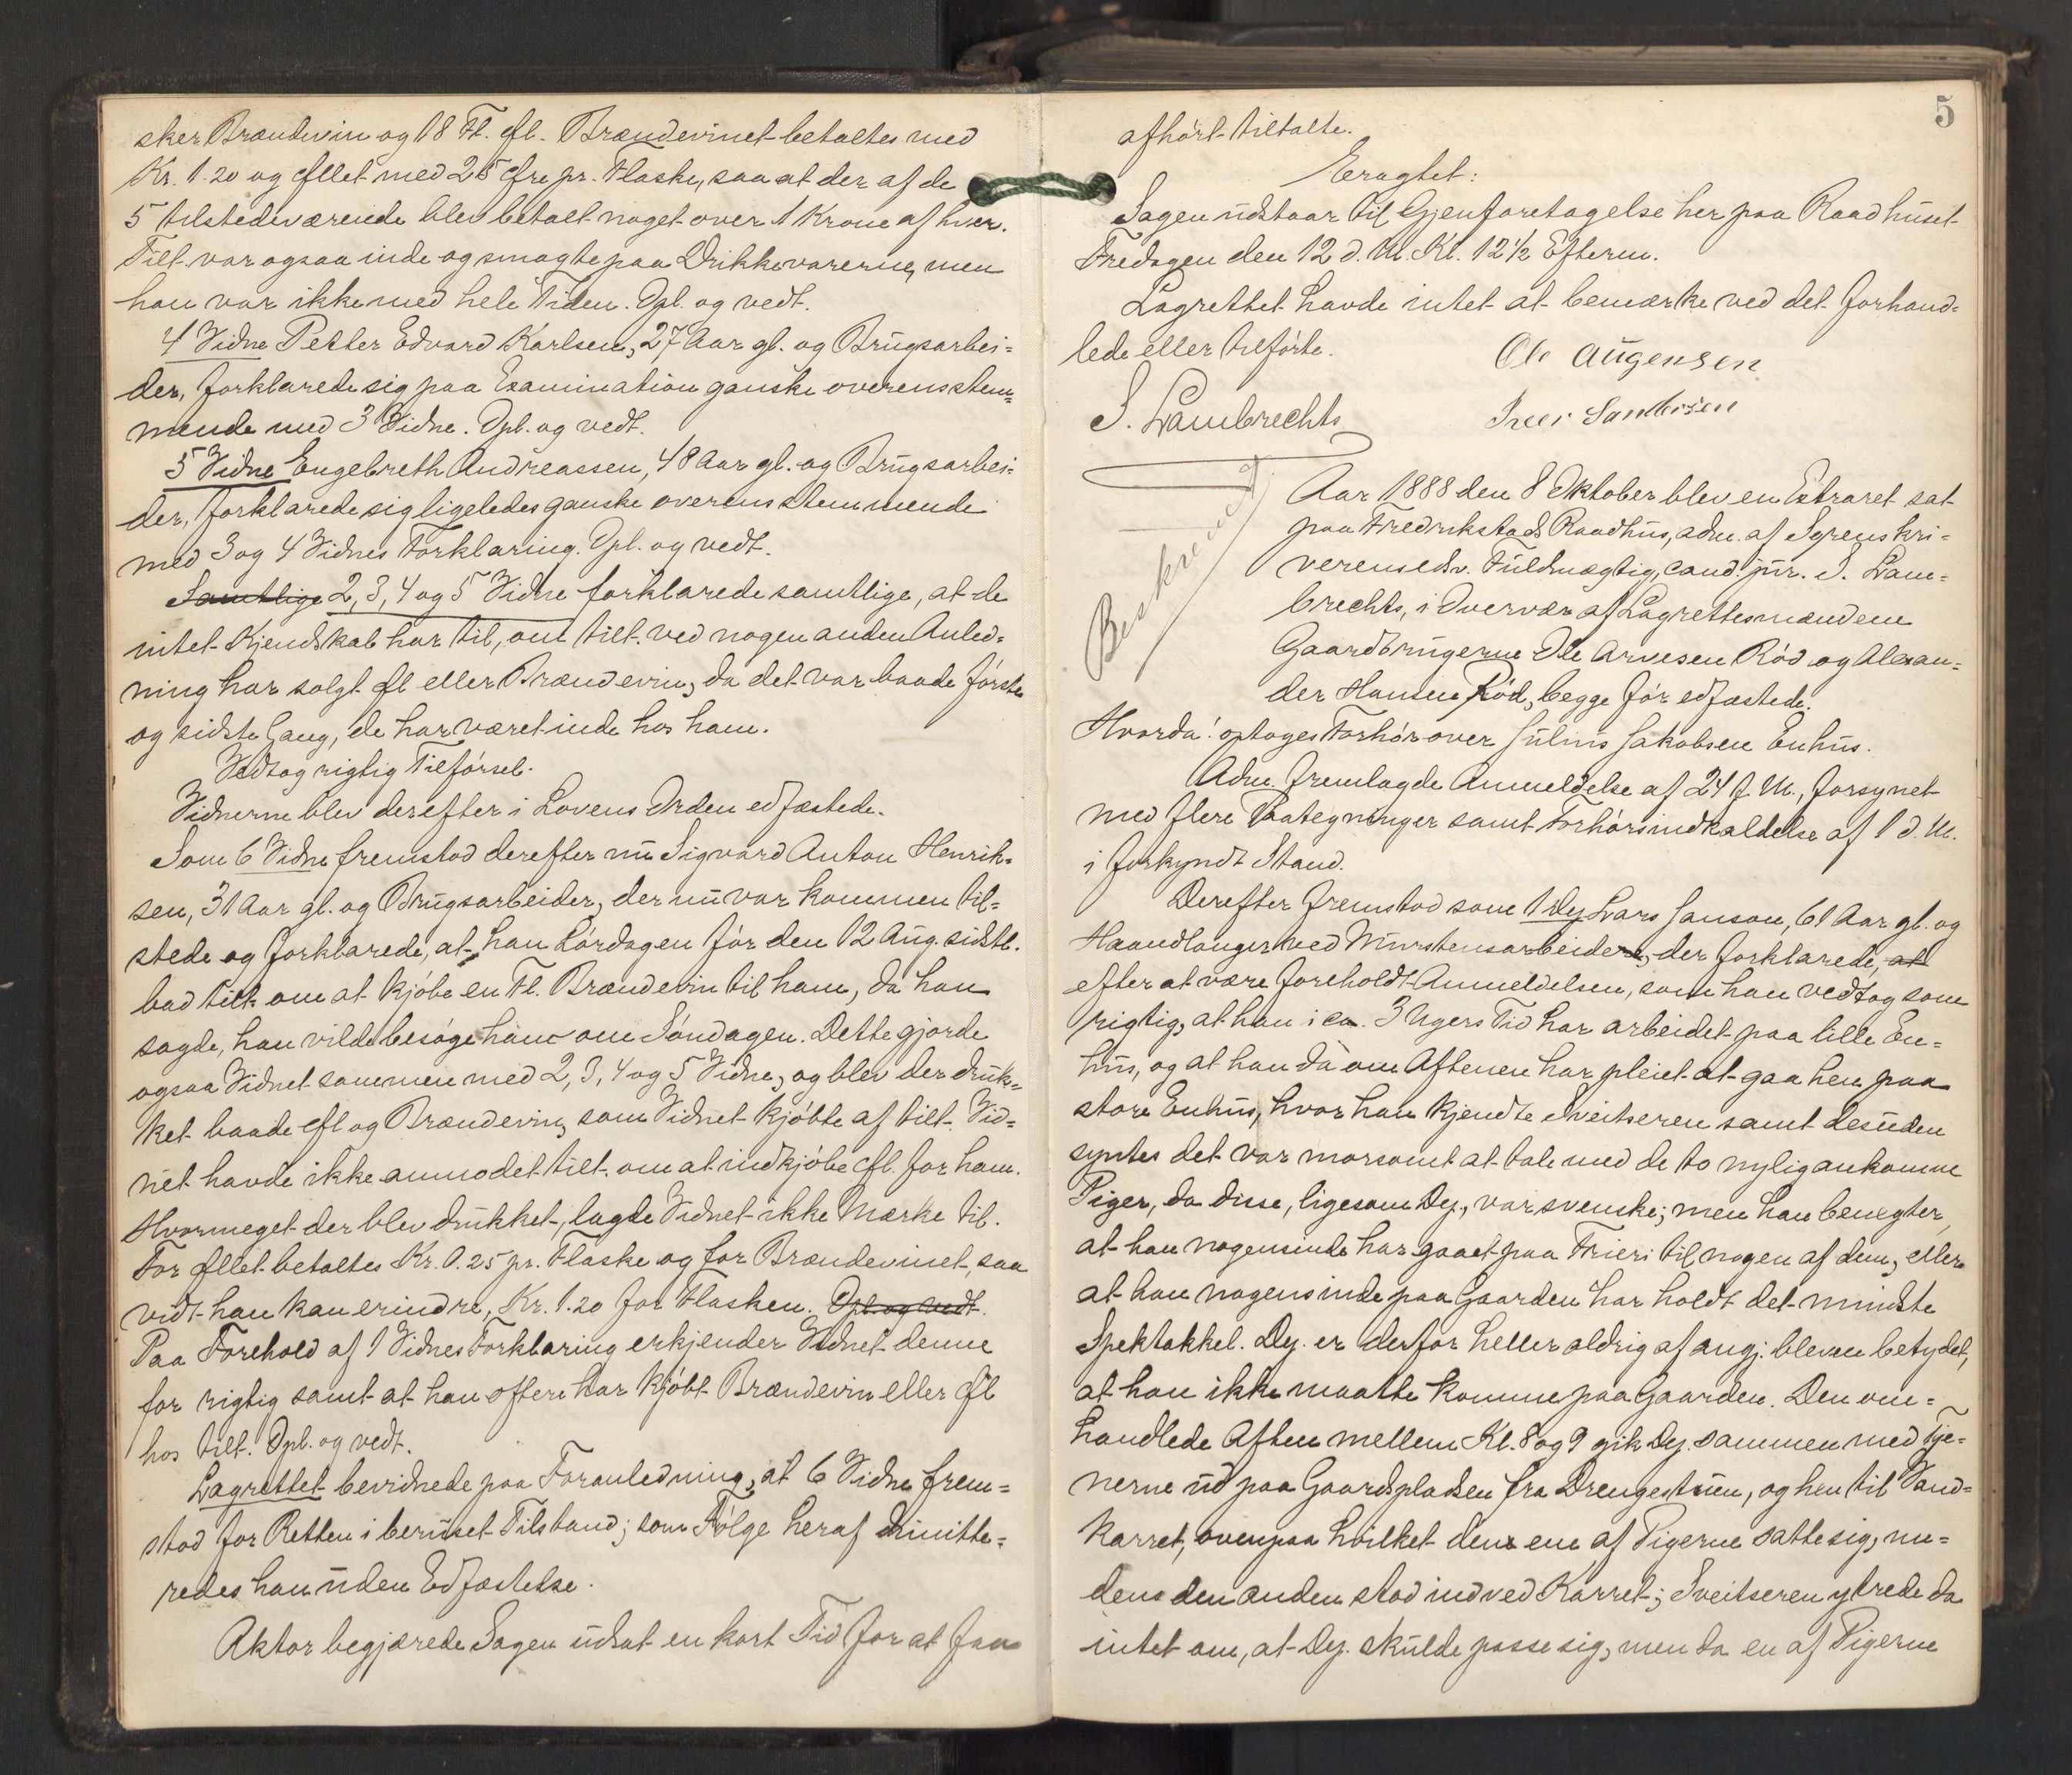 sker Brændevin og 18 Fl. Øl. Brændevinet betaltes med
Kr. 1.20 og Øllet med 25 Øre pr. Flaske, saa at der af de
5 tilstedeværende blev betalt noget over 1 Krone af hver.
Tilt. var ogsaa inde og smagte paa Drikkevarerne, men
han var ikke med hele Tiden. Opl. og vedt.
4 Vidne Petter Edvard Karlsen, 27 Aar gl. og Brugsarbei=
der, forklarede sig paa Examination ganske overensstem=
mende med 3 Vidne. Opl. og vedt.
5 Vidne Engebreth Andreassen, 48 Aar gl. og Brugsarbei=
der, forklarede sig ligeledes ganske overensstemmende
med 3 og 4 Vidnes Forklaring. Opl. og vedt.
Samtlige 2, 3, 4 og 5 Vidne forklarede samtlige, at de
intet Kjendskab har til, om tilt. ved nogen anden Anled=
ning har solgt Øl eller Brændevin, da det var baade første
og sidste Gang, de har været inde hos ham.
Vedtog rigtig Tilførsel.
Vidnerne blev derefter i Lovens Orden edfæstede.
Som 6 Vidne fremstod derefter nu Sigvard Anton Henrik=
sen, 31 Aar gl. og Brugsarbeider, der nu var kommen til=
stede og forklarede, at han Lørdagen før den 12 Aug. sidstl.
bad tilt. om at kjøbe en Fl. Brændevin til ham, da han
sagde, han vilde besøge ham om Søndagen. Dette gjorde
ogsaa Vidnet sammen med 2, 3, 4 og 5 Vidne, og blev der druk=
ket baade Øl og Brændevin, som Vidnet kjøbte af tilt. Vid=
net havde ikke anmodet tilt. om at indkjøbe Øl for ham.
Hvormeget der blev drukket, lagde Vidnet ikke Mærke til.
For Øllet betaltes Kr. 0.25 pr. Flaske og for Brændevinet, saa
vidt han kan erindre, Kr. 1.20 for Flasken. Opl. og vedt.
Paa Forehold af 1 Vidnes Forklaring erkjender Vidnet denne
for rigtig samt at han oftere har kjøbt Brændevin eller Øl
hos tilt. Opl. og vedt.
Lagrettet bevidnede paa Foranledning, at 6 Vidne frem=
stod for Retten i beruset Tilstand; som Følge heraf dimitte=
redes han uden Edfæstelse.
Aktor begjærede Sagen udsat en kort Tid for at faa
5
afhørt tiltalte.
Eragtet:
Sagen udstaar til Gjenforetagelse her paa Raadhuset
Fredagen den 12 d. M. Kl. 12 1/2 Efterm.
Lagrettet havde intet at bemærke ved det forhand=
lede eller tilførte.
Ole Augensen
S. Lambrechts
Beskrevet
Aar 1888 den 8 Oktober blev en Extraret sat
paa Fredrikstads Raadhus, adm. af Sorenskri=
verens edsv. Fuldmægtig, cand. jur. S. Lam=
brechts, i Overvær af Lagrettesmændene
Gaardbrugerne Ole Arvesen Rød og Alexan=
der Hansen Rød, begge før edfæstede.
Hvorda: optoges Forhør over Julius Jakobsen Enhus.
Adm. fremlagde Anmeldelse af 24 f. M., forsynet
med flere Paategninger samt Forhørsindkaldelse af 1 d. M.
i forkyndt Stand.
Derefter fremstod som 1 Dep Lars Janson, 61 Aar gl. og
Haandlanger ved Murstensarbeider, der forklarede, at
efter at være foreholdt Anmeldelsen, som han vedtog som
rigtig, at han i ca. 3 Ugers Tid har arbeidet paa lille En=
hus, og at han da om Aftenen har pleiet at gaa hen paa
store Enhus, hvor han kjendte Sveitseren samt desuden
syntes det var morsomt at tale med de to nylig ankomne
Piger, da disse, ligesom Dep., var svenske; men han benegter,
at han nogensinde har gaaet paa Frieri til nogen af dem, eller
at han nogensinde paa Gaarden har holdt det mindste
Spektakkel. Dep. er derfor heller aldrig af angj. bleven betydet,
at han ikke maatte komme paa Gaarden. Den om=
handlede Aften mellem Kl. 8 og 9 gik Dep. sammen med Tje=
nerne ud paa Gaardspladsen fra Drengestuen, og hen til Vand=
karret, ovenpaa hvilket den ene af Pigerne satte sig, me=
dens den anden stod ind ved Karret; Sveitseren ytrede da
intet om, at Dep. skulde passe sig, men da en af Pigerne